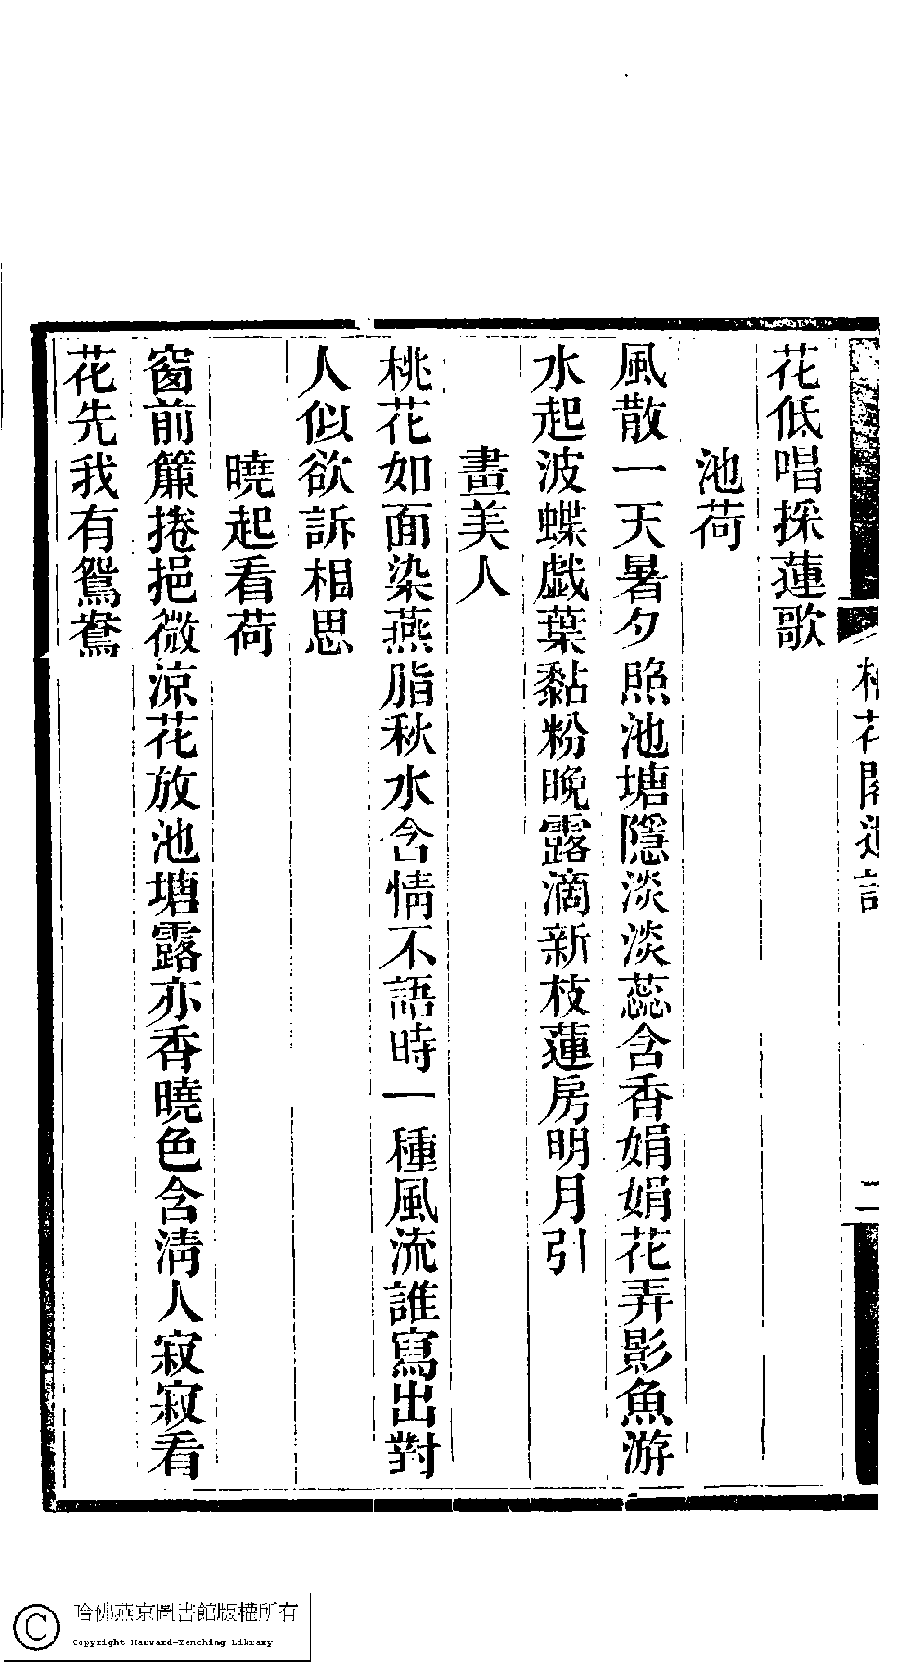 花低唱採蓮歌
池荷
風散一天暑夕照池塘隱淡淡蕊含香娟娟花弄影魚游
水起波蝶戯葉黏粉晚露滴新枝蓮房明月引
畫美人
桃花如面染燕脂秋水含情不語時一種風流誰寫出對
人似欲訴相思
曉起看荷
窗前簾捲挹微涼花放池塘露亦香曉色含淸人寂寂看
花先我有鴛鴦
二
哈佛燕京圖書館版權所有
Copyright Harvard-Yenching Library